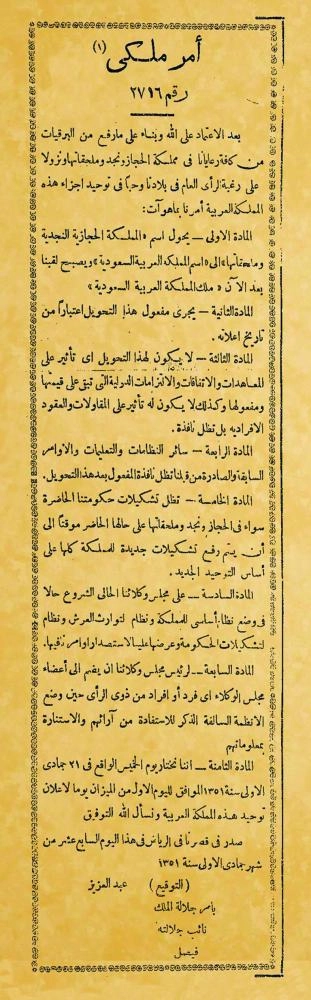 أمر ملكى (١)
رقم ٢٧١٦
بعد الاعتماد على الله وبناء على مارفع من البرقيات
من كافة رعايانا فى مملكة الحجاز ونجد وملحقاتها ونزولا
على رغبة الرأى العام فى بلادنا وحبا فى توحيد اجزاء هذه
المملكة العربية أمرنا بما هو آت :
المادة الاولى — يحول اسم « المملكة الحجازية النجدية
وملحقاتها » الى « اسم المملكة العربية السعودية » ويصبح لقبنا
بعد الآن « ملك المملكة العربية السعودية »
المادة الثانية — يجرى مفعول هذا التحويل اعتبارا من
تاريخ اعلانه .
المادة الثالثة — لا يكون لهذا التحويل اى تأثير على
المعاهدات والاتفاقات والالتزامات الدولية التى تبقى على قيمتها
ومفعولها وكذلك لا يكون له تأثير على المقاولات والعقود
الافراديه بل تظل نافذة .
المادة الرابعة — سائر النظامات والتعليمات والاوامر
السابقة والصادرة من قبلنا تظل نافذة المفعول بعد هذا التحويل .
المادة الخامسة — تظل تشكيلات حكومتنا الحاضرة
سواء فى الحجاز ونجد وملحقاتها على حالها الحاضر موقتا الى
أن يتم وضع تشكيلات جديدة للمملكة كلها على
أساس التوحيد الجديد .
المادة السادسة — على مجلس وكلائنا الحالى الشروع حالا
فى وضع نظام أساسى للمملكة ونظام لتوارث العرش ونظام
لتشكيلات الحكومة وعرضها علينا لاستصدار اوامرنا فيها .
المادة السابعة — لرئيس مجلس وكلائنا ان يضم الى أعضاء
مجلس الوكلاء اى فرد أو افراد من ذوى الرأى حين وضع
الانظمة السالفة الذكر للاستفادة من آرائهم والاستنارة
بمعلوماتهم
المادة الثامنة — اننا نختار يوم الخميس الواقع فى ٢١ جمادى
الاولى سنة ١٣٥١ الموافق لليوم الاول من الميزان يوما لاعلان
توحيد هذه المملكة العربية ونسأل الله التوفيق
صدر فى قصرنا فى الرياض فى هذا اليوم السابع عشر من
شهر جمادى الاولى سنة ١٣٥١
(التوقيع) عبد العزيز
بامر جلالة الملك
نائب جلالته
فيصل